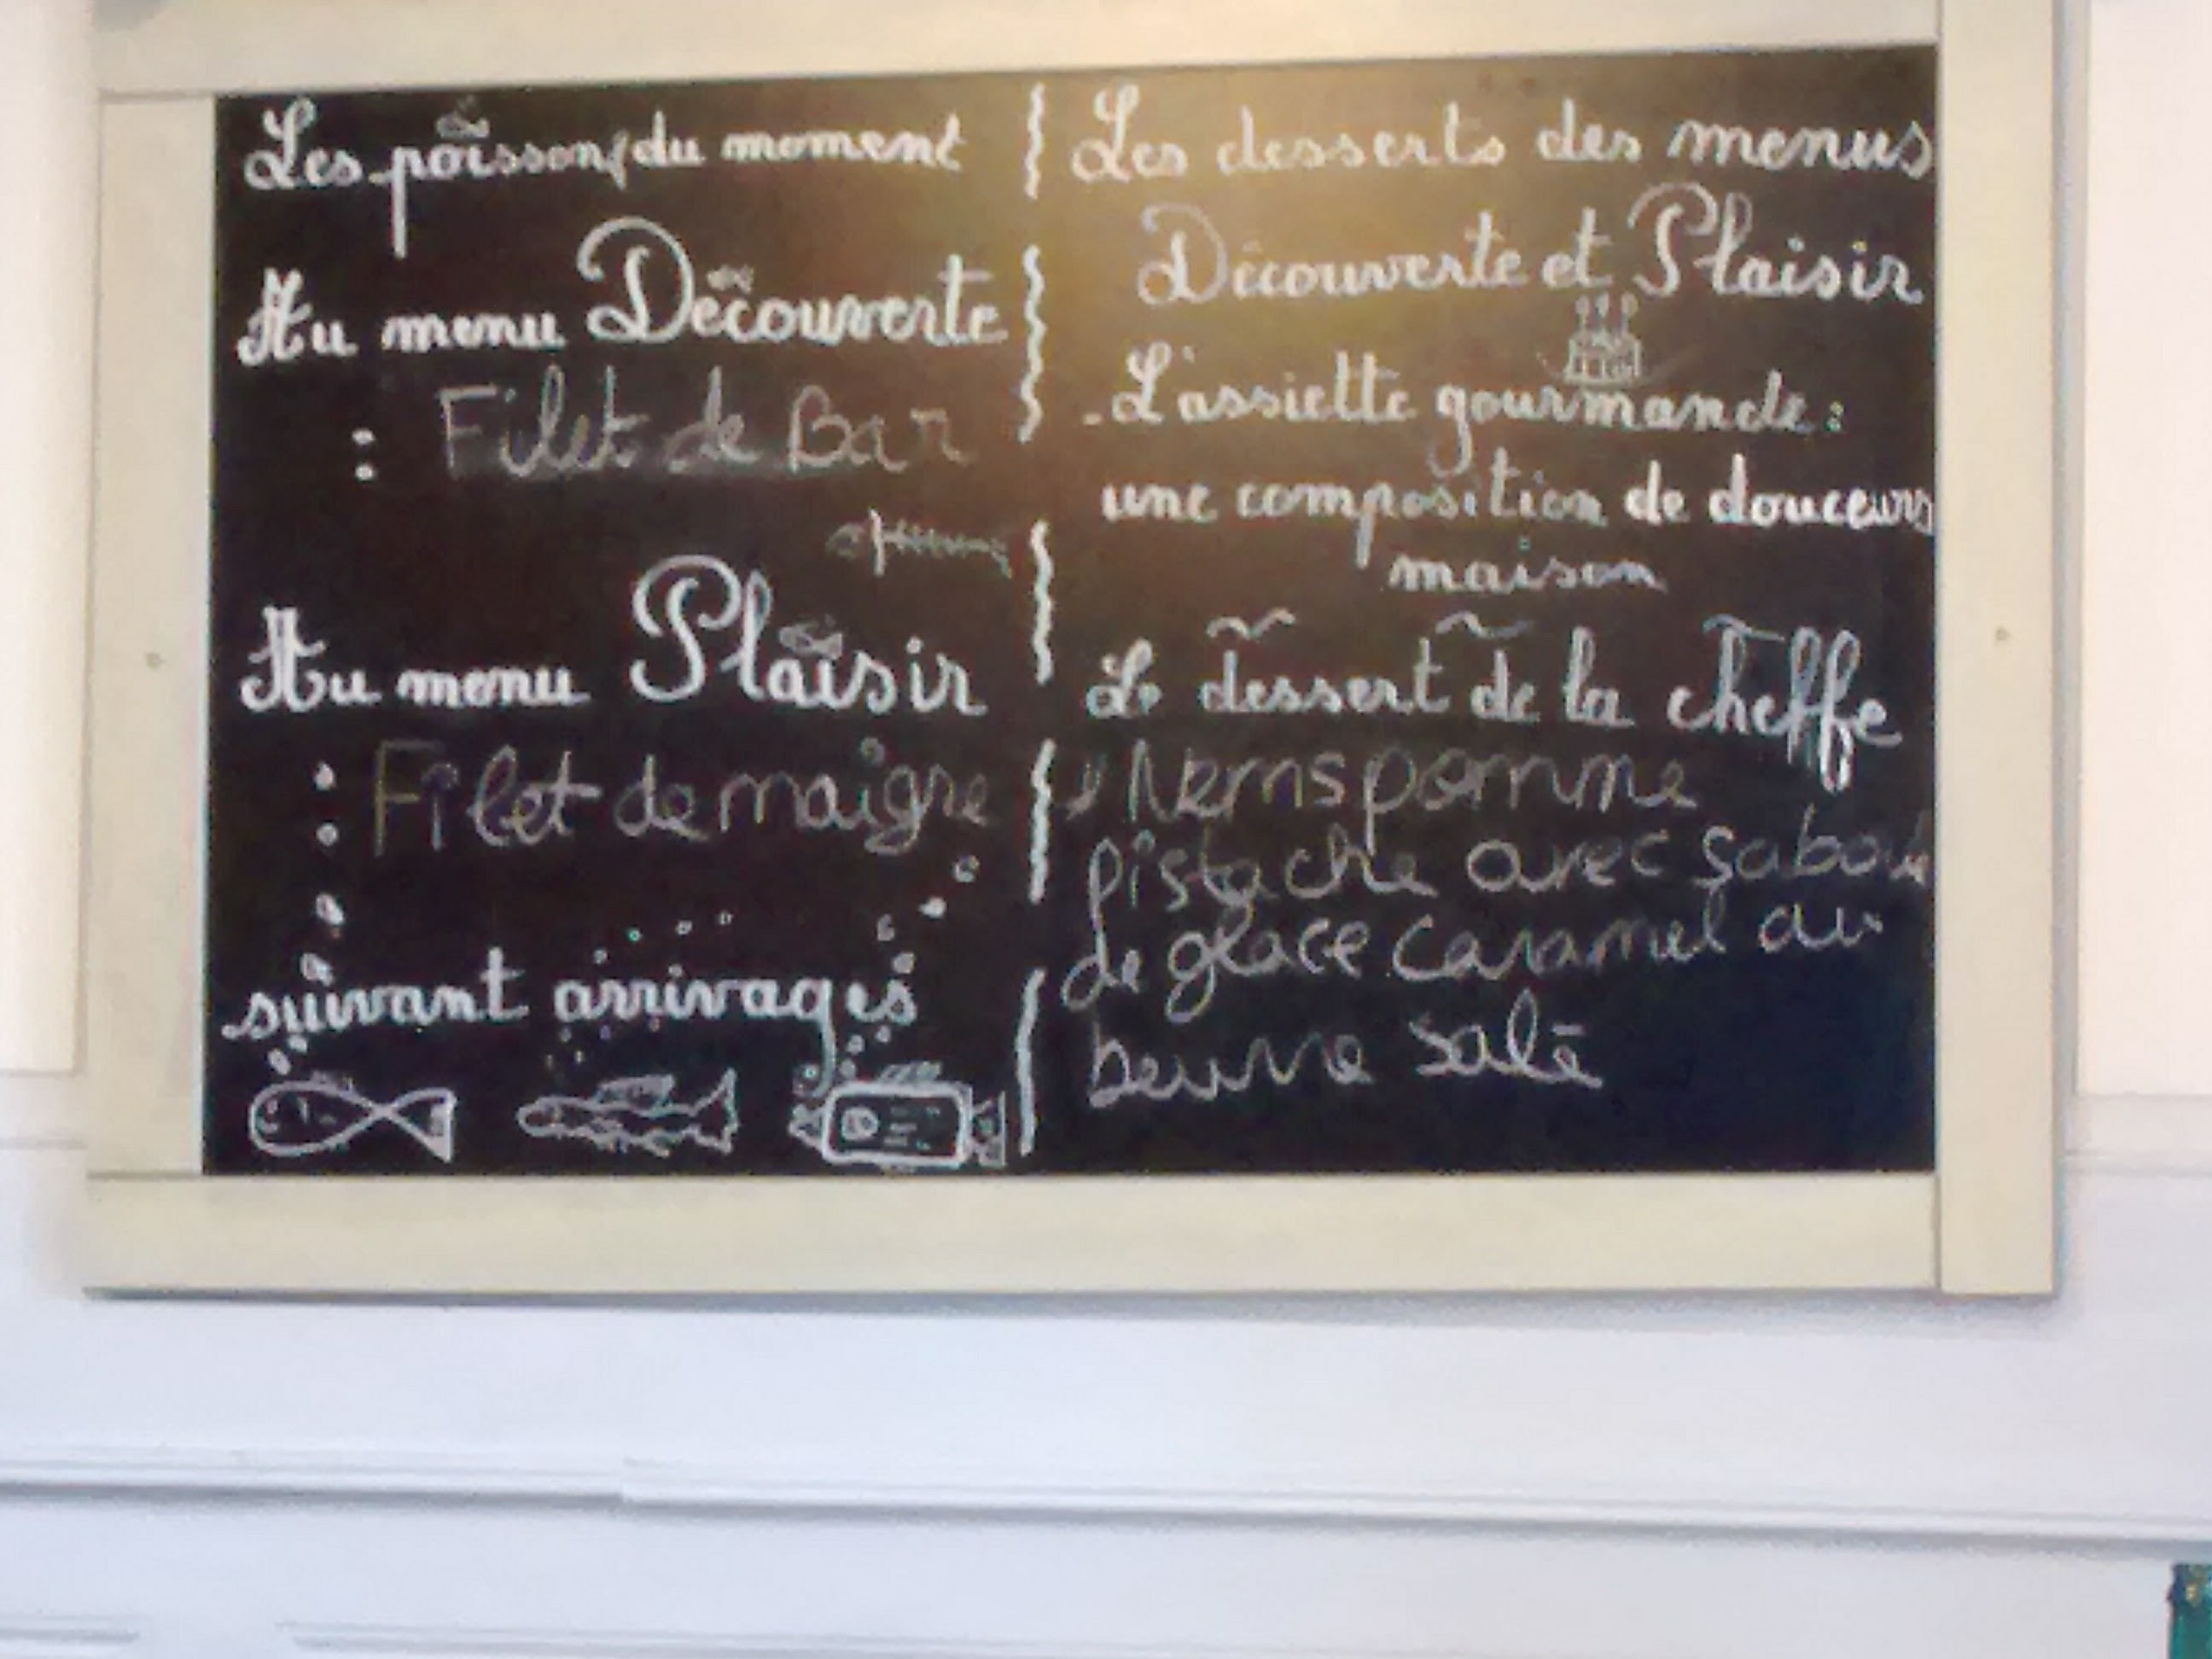 Les poissons du moment
Au menu Découverte
: Filet de Bar
Au menu Plaisir
: Filet de maigre
suivant arrivages
Les desserts des menus
Découverte et Plaisir
- L'assiette gourmande :
une composition de douceurs
maison
Le dessert de la cheffe
Nems pomme
pistache avec
de glace caramel au
beurre salé